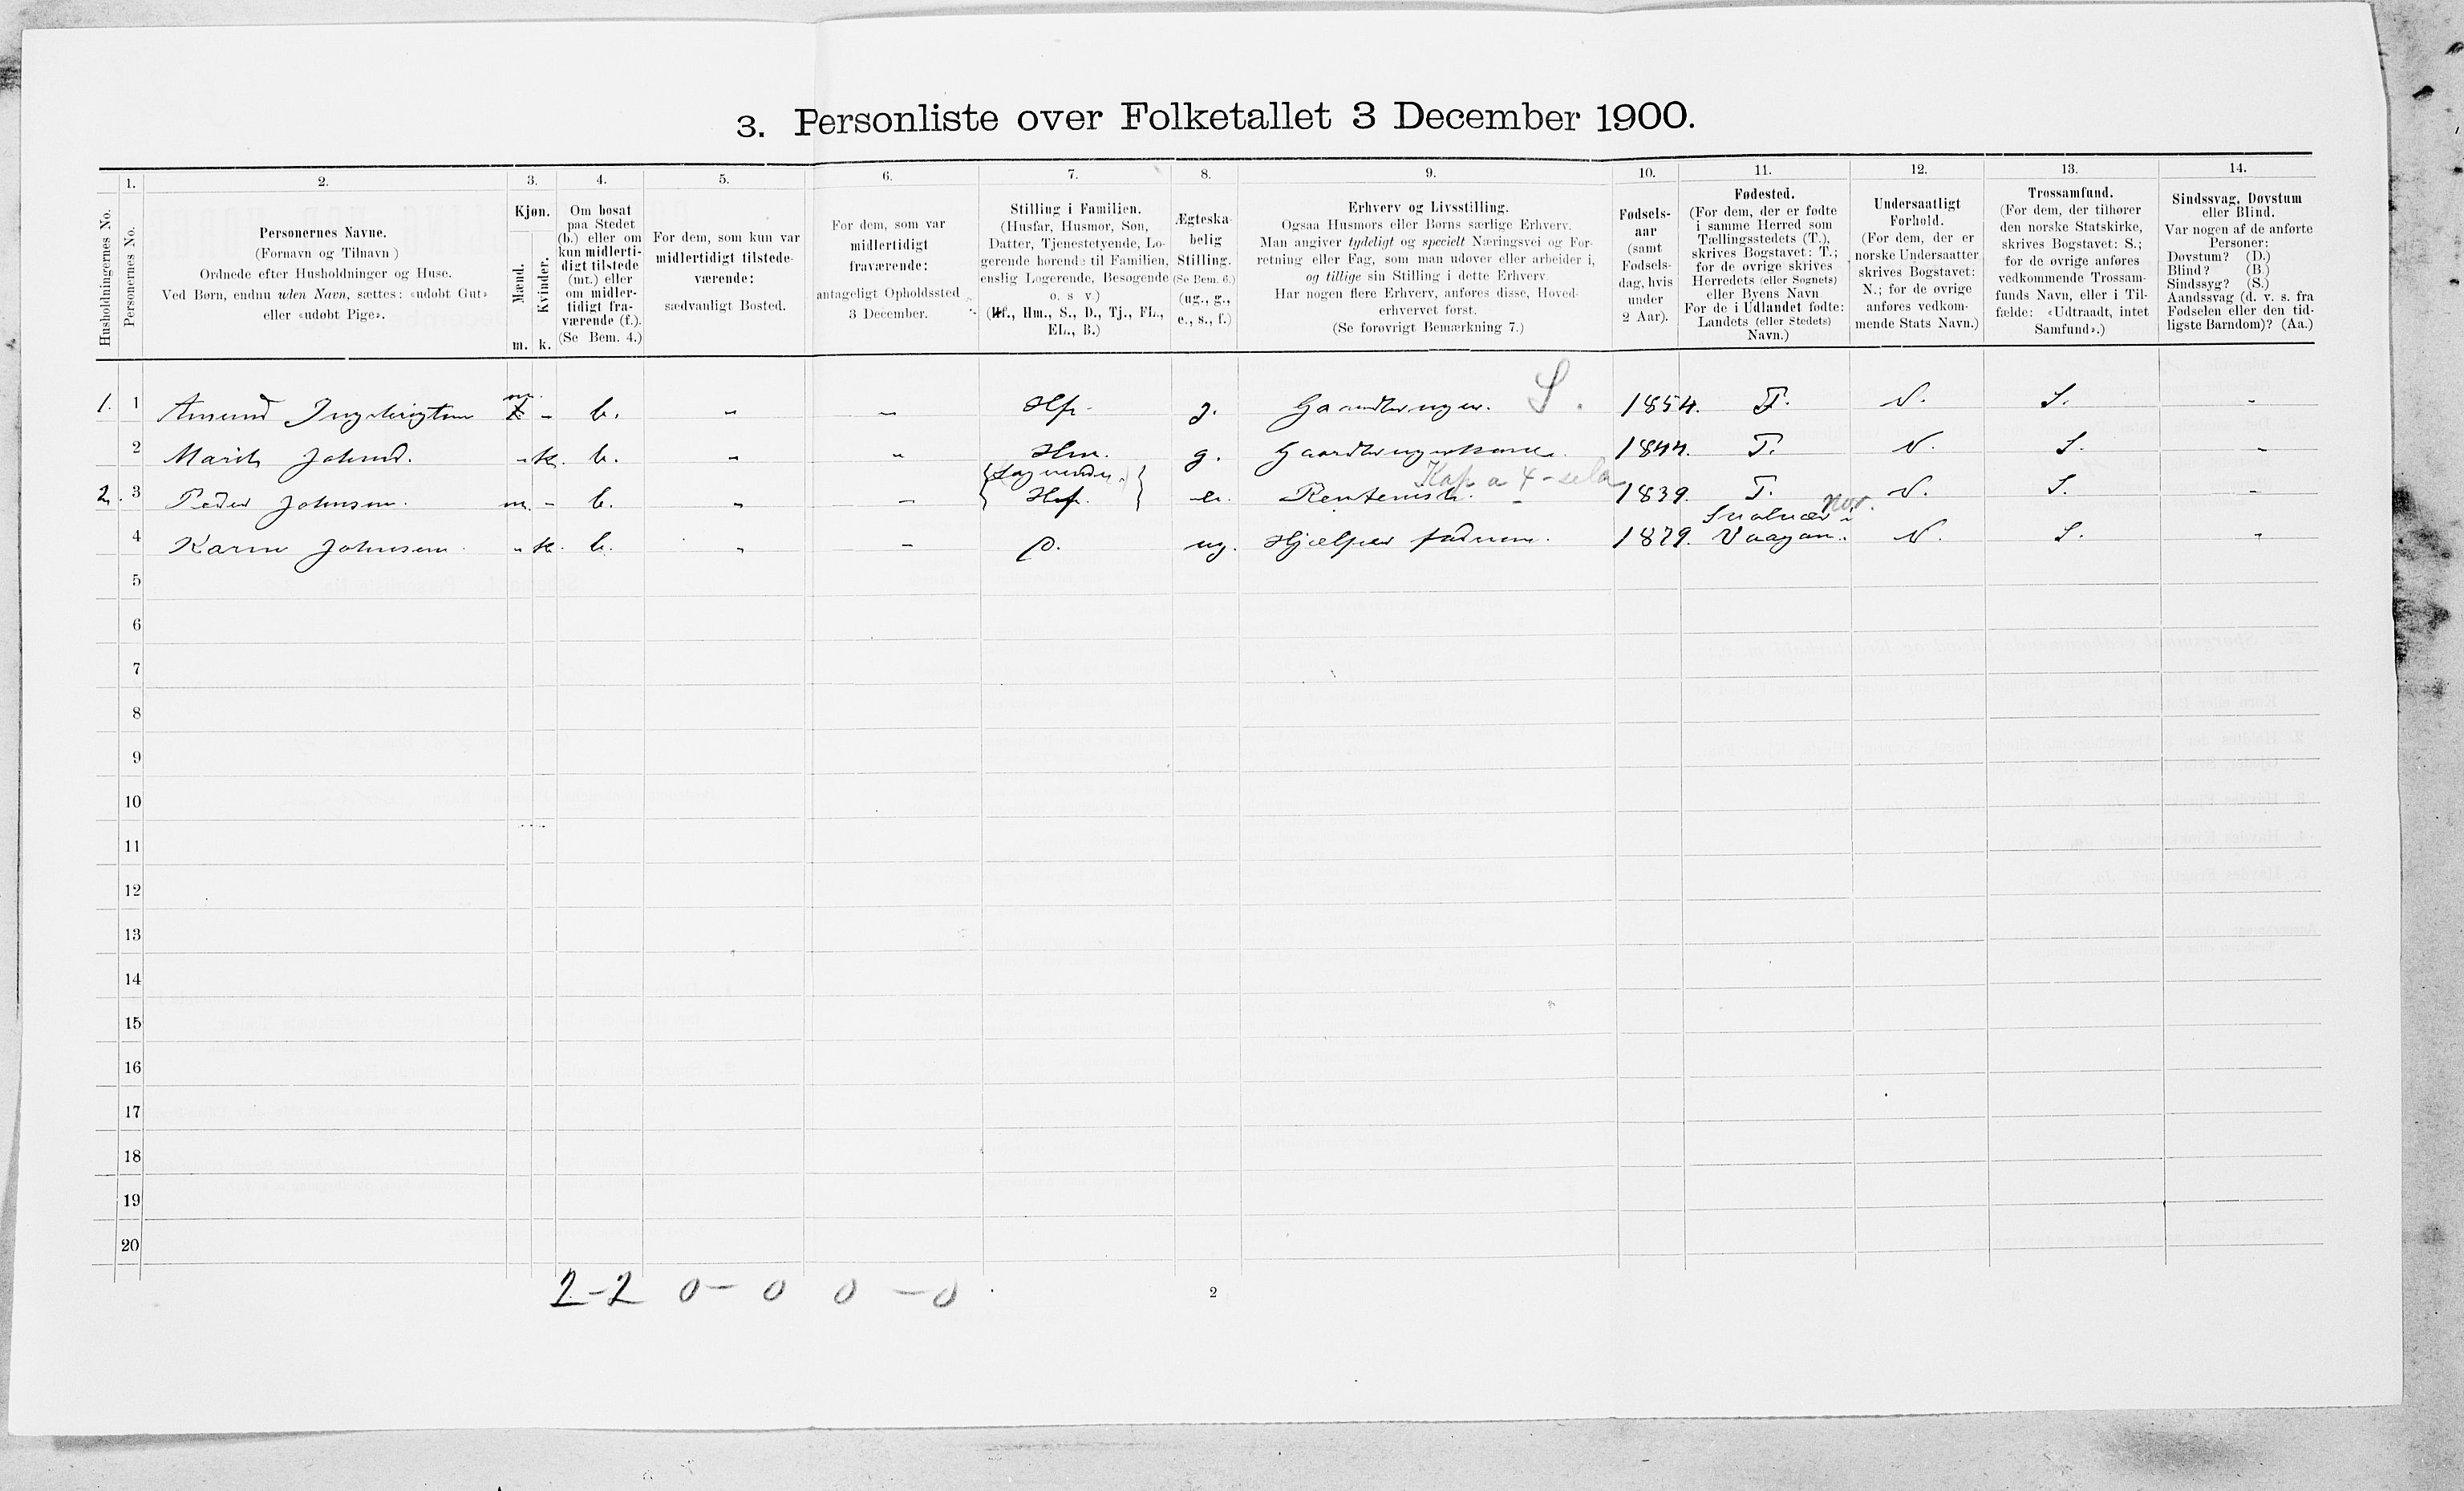 3. Personliste over Folketallet 3 December 1900.
Husholdningernes No.
1.
Personernes No.
2.
Personernes Navne.
(Fornavn og Tilnavn)
Ordnede efter Husholdninger og Huse.
Ved Børn, endnu uden Navn, sættes: «udøbt Gut»
eller «udøbt Pige».
3.
Kjøn.
Mænd.
Kvinder.
m. k.
4.
Om bosat
paa Stedet
(b.) eller om
kun midlerti-
digt tilstede
(mt.) eller
om midler-
tidigt fra-
værende (f.).
(Se Bem. 4.)
5.
For dem, som kun var
midlertidigt tilstede-
værende:
sædvanligt Bosted.
6.
For dem, som var
midlertidigt
fraværende:
antageligt Opholdssted
3 December.
7.
Stilling i Familien.
(Husfar, Husmor, Søn,
Datter, Tjenestetyende, Lo-
gerende hørende til Familien,
enslig Logerende, Besøgende
o. s v.)
(Hf., Hm., S., D., Tj., FL.,
EL., B.)
8.
Ægteska-
belig
Stilling.
(Se Bem. 6.)
(ug., g.,
e., s., f.)
9.
Erhverv og Livsstilling.
Ogsaa Husmors eller Børns særlige Erhverv.
Man angiver tydeligt og specielt Næringsvei og For-
retning eller Fag, som man udøver eller arbeider i,
og tillige sin Stilling i dette Erhverv.
Har nogen flere Erhverv, anføres disse, Hoved-
erhvervet først.
(Se forøvrigt Bemærkning 7.)
10.
Fødsels-
aar
(samt
Fødsels-
dag, hvis
under
2 Aar).
11.
Fødested.
(For dem, der er fødte
i samme Herred som
Tællingsstedets (T.),
skrives Bogstavet: T.;
for de øvrige skrives
Herredets (eller Sognets)
eller Byens Navn
For de i Udlandet fødte:
Landets (eller Stedets)
Navn.)
12.
Undersaatligt
Forhold.
(For dem, der er
norske Undersaatter
skrives Bogstavet:
N.; for de øvrige
anføres vedkom-
mende Stats Navn.)
13.
Trossamfund.
(For dem, der tilhører
den norske Statskirke,
skrives Bogstavet: S.;
for de øvrige anføres
vedkommende Trossam-
funds Navn, eller i Til-
fælde: «Udtraadt, intet
Samfund».)
14.
Sindssvag, Døvstum
eller Blind.
Var nogen af de anførte
Personer:
Døvstum? (D.)
Blind? (B.)
Sindssyg? (S.)
Aandssvag (d. v. s. fra
Fødselen eller den tid-
ligste Barndom)? (Aa.)
1. 1 Amund Ingebrigtsen m. - b. " " Hf. g. Gaardbruger. S. 1854. T. N. S. -
2 Marit Johnsd. " k. b. " " Hm. g. Gaardbrugerkone. 1844. T. N. S. -
2. 3 Peder Johnsen. m. - b. " - Logerende Hf. e. Rentenist. Kap a 1839. T. N. S. -
4 Karen Johnsen. " k. b. " - D. ug. Hjælper faderen. 1879. Svolvær i Vaagan. Nor. N. S. "
5
6
7
8
9
10
11
12
13
14
15
16
17
18
19
20
2-2 0-0 0-0
2